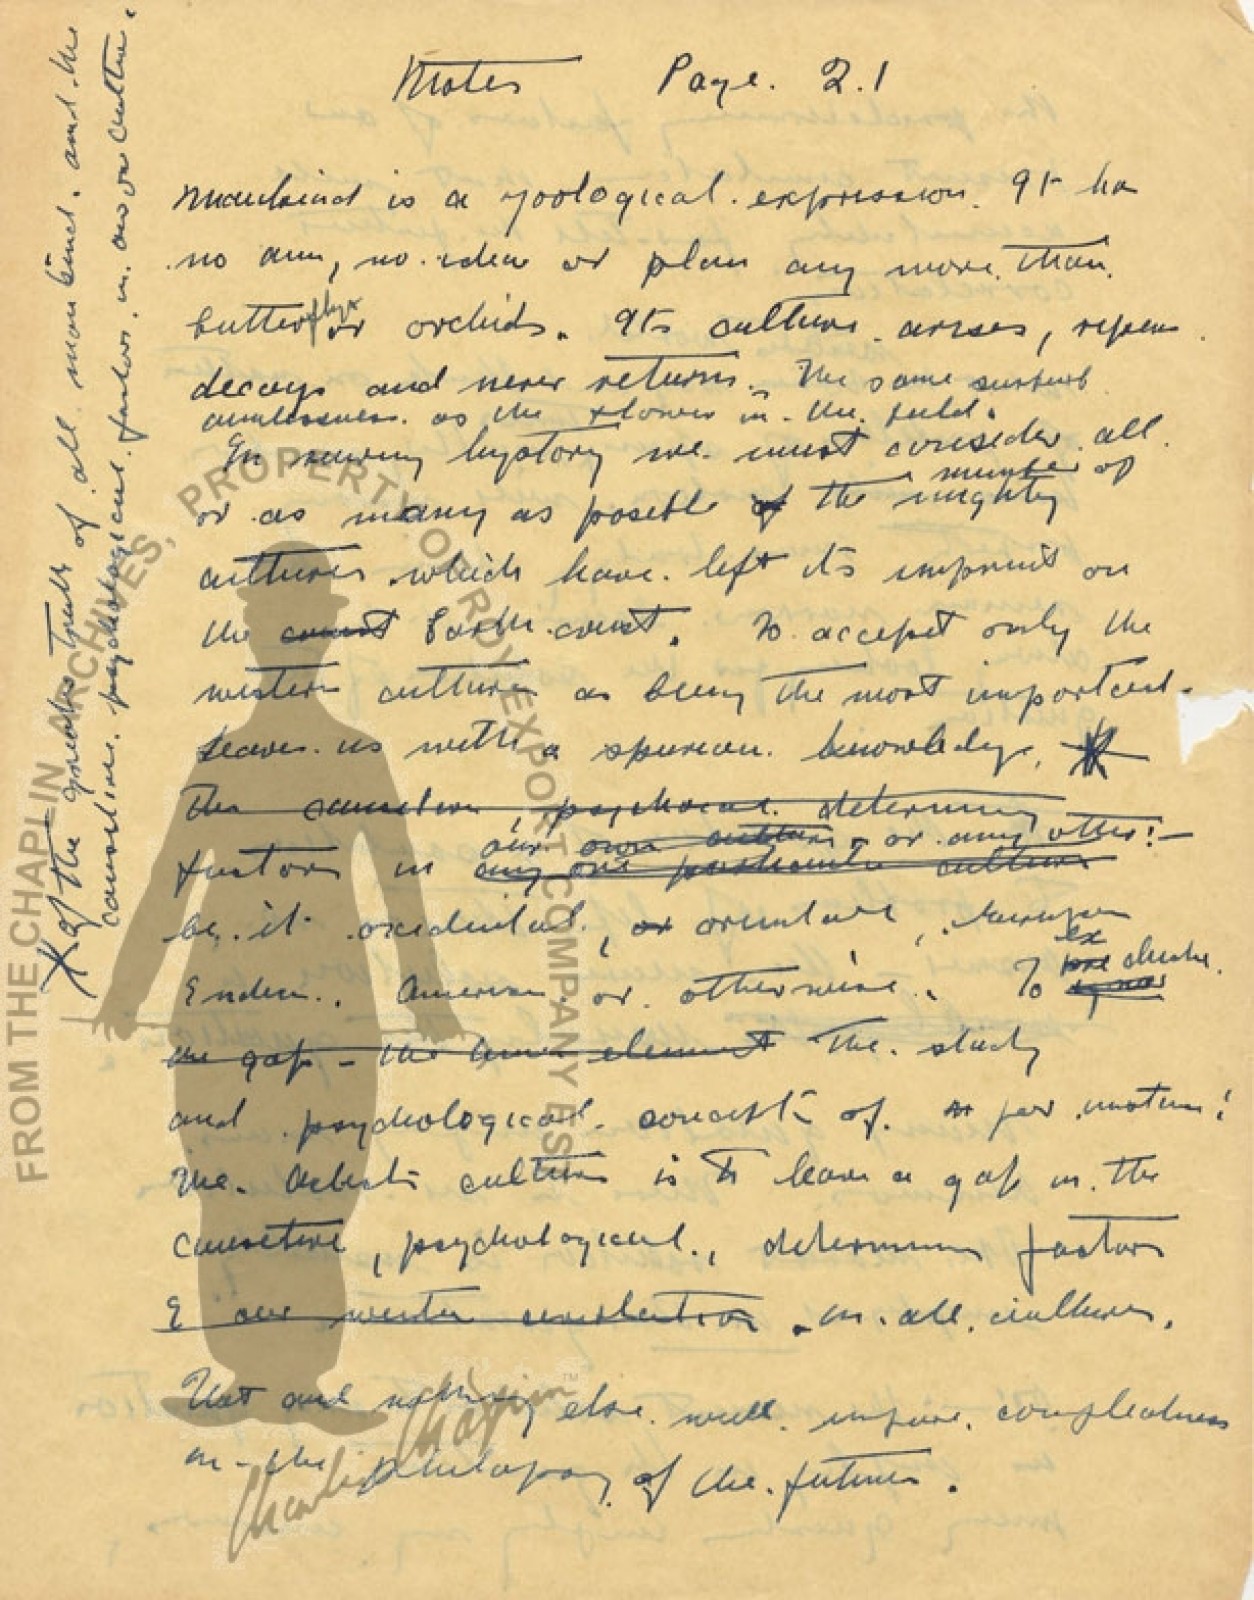 Notes Page. 2.1
Mankind is a zoological expression. It has
no aim, no idea or plan any more than
butterflys or orchids. Its culture arises, ripens
decays and never returns. The same
aimlessness as the flower in the field.
In viewing hystory we must consider all
or as many as posible of the number of mighty
cultures which have left its imprint on
the Earth crust. To accept only the
western culture as being the most important
leaves us with a knowledge,
The causetive, psychical determining
factors in our own culture or any other:-
any one particular culture
be it occidental, or oriental, European
Endien. American or otherwise. To exclude
the gap - the element the study
and psychological concept of
culture is to leave a gap in the
causetive, psychological, determining factors
our western in all cultures.
That and nothing else will compleatness
in the philosophy of the future.
X of the greater truth of all mankind. and the
causetive psychological factors in our own culture.
FROM THE CHAPLIN ARCHIVES, PROPERTY OF ROY EXPORT COMPANY EST
Charlie Chaplin™